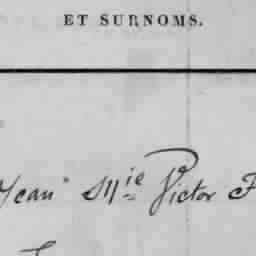 ET SURNOMS.
Jean Mie Victor F